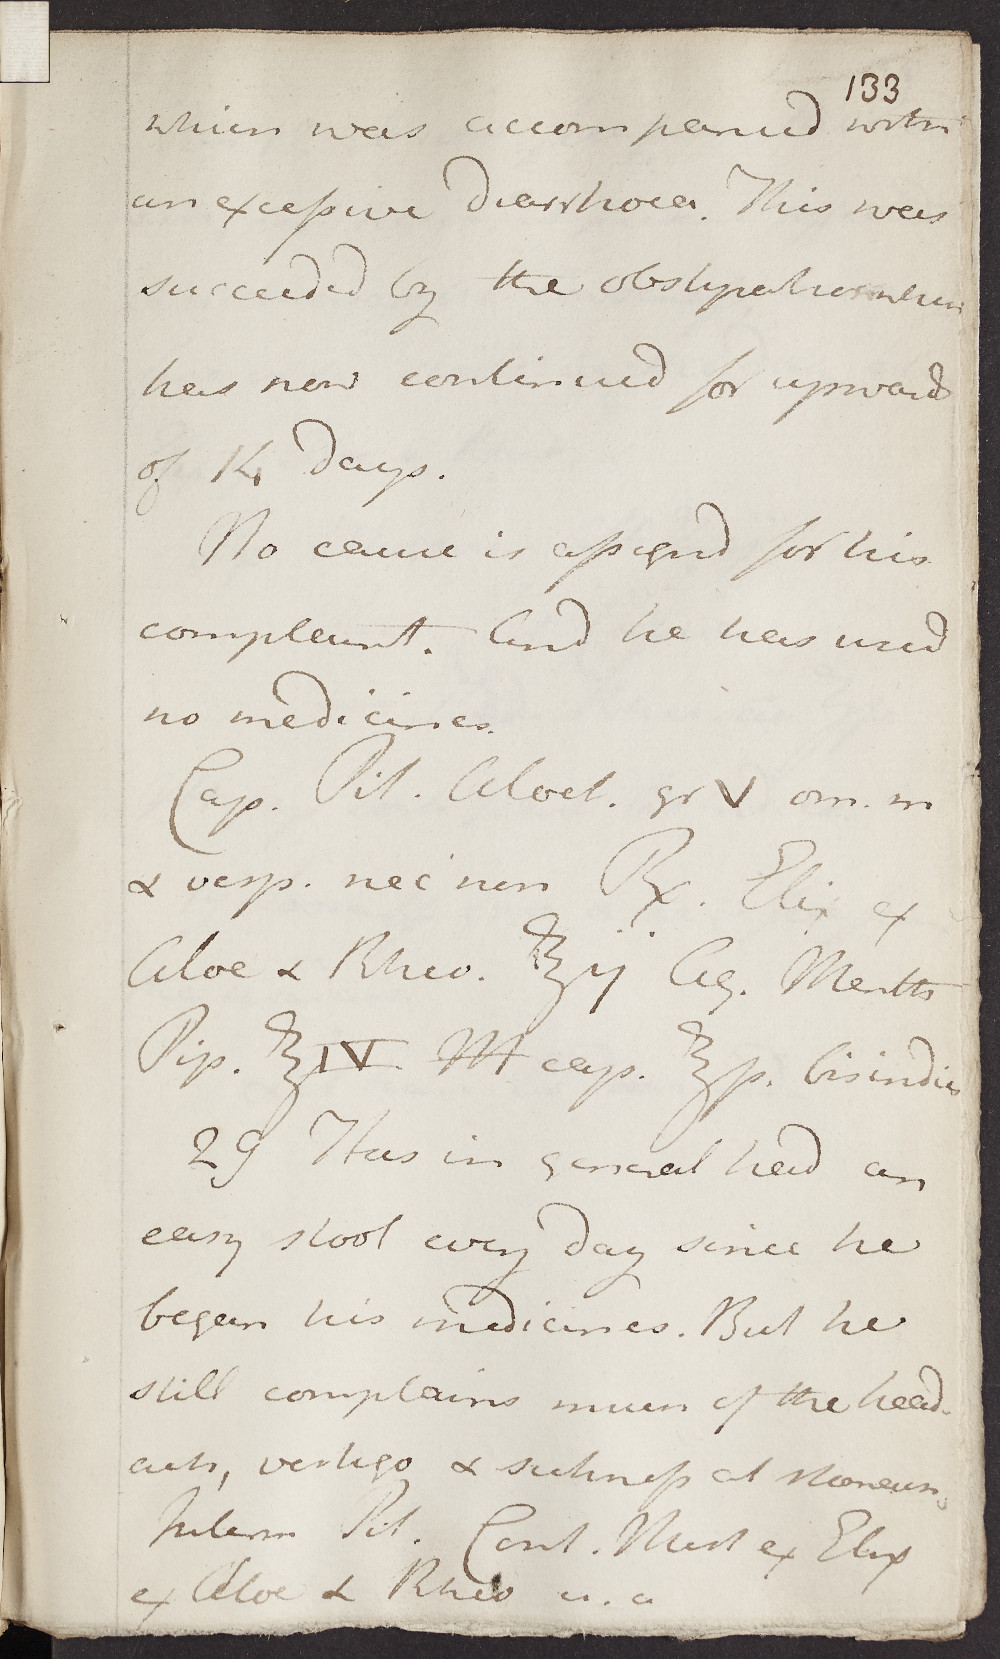 133
which was accompanied with
an excessive Diarrhoea. This was
succeeded by the obstipation which
has now continued for upwards
of 14 days.
No cause is assignd for his
complaint. And he has used
no medicines.
Cap. Pil. Aloet. gr V om. m
& vesp. nec non Rx. Elix ex
Aloe & Rheo. ℥ij Aq. Menth
Pip. ℥IV M cap. ℥ß. bis indies
29 Has in general had an
easy stool every day since he
began his medicines. But he
still complains much of the head-
ach, vertigo & sickness at stomach.
Interm Pil. Cont. Mist ex Elix
ex Aloe & Rheo u. a